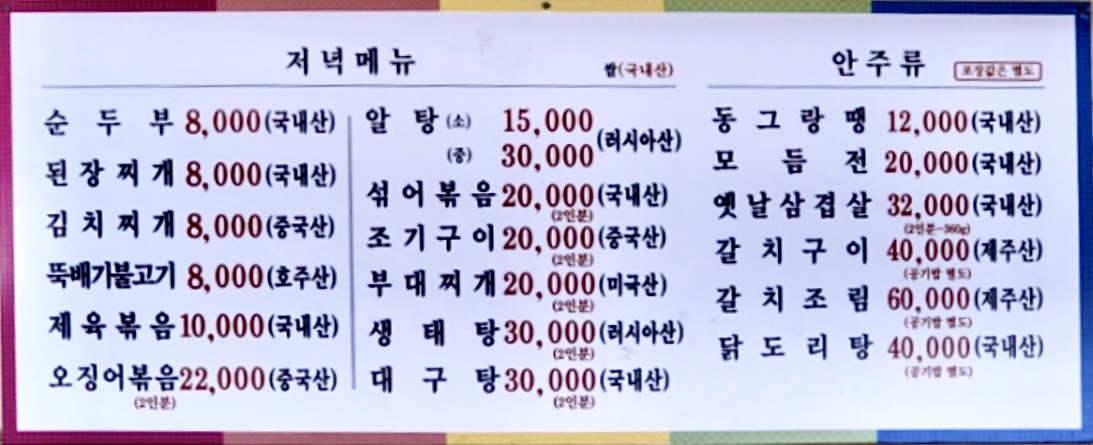 저녁메뉴
쌀(국내산)
순두부 8,000(국내산)
된장찌개 8,000(국내산)
김치찌개 8,000(중국산)
뚝배가불고기 8,000(호주산)
제육볶음 10,000(국내산)
오징어볶음 22,000(중국산)
(2인분)
알탕(소) 15,000
(러시아산)
(중) 30,000
섞어볶음 20,000(국내산)
(2인분)
조기구이 20,000(중국산)
(2인분)
부대찌개 20,000(미국산)
(2인분)
생태탕 30,000(러시아산)
(2인분)
대구탕 30,000(국내산)
(2인분)
안주류
포장값은 별도
동그랑땡 12,000(국내산)
모듬전 20,000(국내산)
옛날삼겹살 32,000(국내산)
(2인분-360g)
갈치구이 40,000(제주산)
(공기밥 별도)
갈치조림 60,000(제주산)
(공기밥 별도)
닭도리탕 40,000(국내산)
(공기밥 별도)